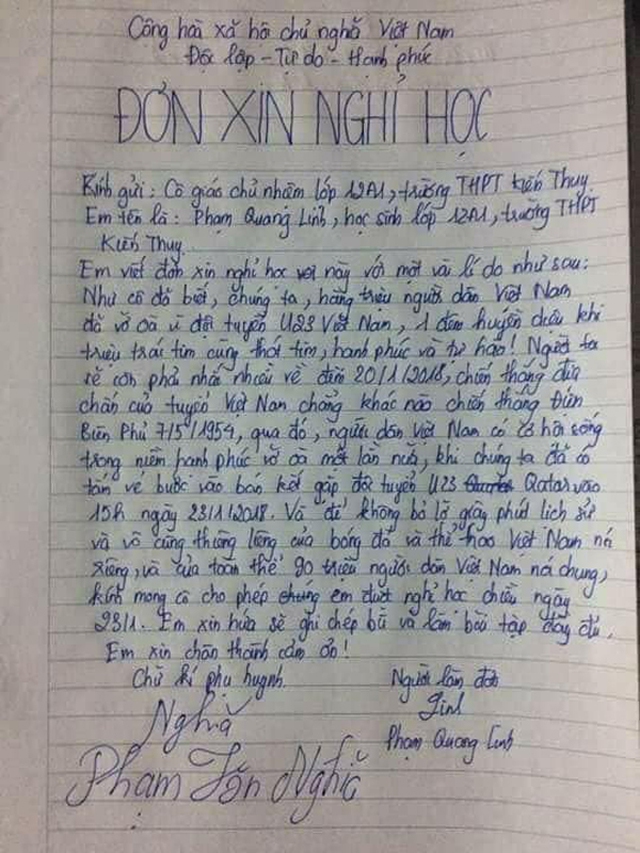 Cộng hoà xã hội chủ nghĩa Việt Nam
Độc lập - Tự do - Hạnh phúc
ĐƠN XIN NGHỈ HỌC
Kính gửi: Cô giáo chủ nhiệm lớp 12A1, trường THPT Kiến Thụy
Em tên là: Phạm Quang Linh, học sinh lớp 12A1, trường THPT
Kiến Thụy.
Em viết đơn xin nghỉ học này với một vài lí do như sau:
Như cô đã biết, chúng ta, hàng triệu người dân Việt Nam
đã vỡ oà vì đội tuyển U23 Việt Nam, 1 đêm huyền diệu khi
triệu trái tim cùng thót tim, hạnh phúc và tự hào! Người ta
sẽ còn phải nhắc nhiều về đêm 20/1/2018, chiến thắng
của tuyển Việt Nam chẳng khác nào chiến thắng Điện
Biên Phủ 7/5/1954, qua đó, người dân Việt Nam có cơ hội sống
trong niềm hạnh phúc vỡ oà một lần nữa, khi chúng ta đã có
tấm vé bước vào bán kết gặp đội tuyển U23 Qatar vào
15h ngày 23/1/2018. Và để không bỏ lỡ giây phút lịch sử
và vô cùng thiêng liêng của bóng đá và thể thao Việt Nam nói
riêng, và của toàn thể 90 triệu người dân Việt Nam nói chung,
kính mong cô cho phép chúng em được nghỉ học chiều ngày
23/1. Em xin hứa sẽ ghi chép bù và làm bài tập đầy đủ.
Em xin chân thành cảm ơn!
Chữ kí phụ huynh. Người làm đơn
Nghĩa Linh
Phạm Tấn Nghĩa Phạm Quang Linh